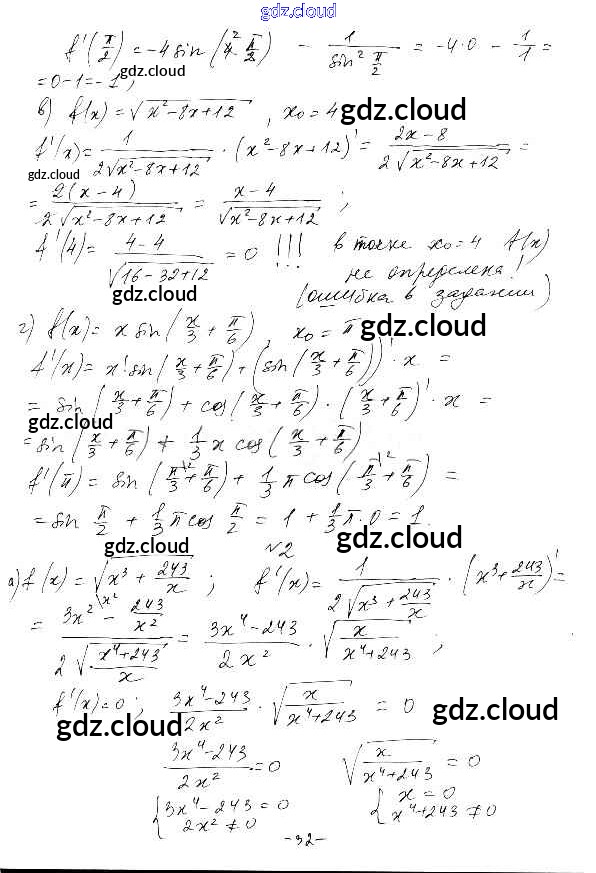 gdz.cloud
gdz.cloud
f'(π/2) = -4 sin (4·π/2) - 1/(sin² π/2) = -4·0 - 1/1 =
= 0-1 = -1;
gdz.cloud
в) f(x) = √(x²-8x+12), x₀ = 4
gdz.cloud
f'(x) = 1/(2√(x²-8x+12)) · (x²-8x+12)' = (2x-8)/(2√(x²-8x+12)) =
gdz.cloud
gdz.cloud
= 2(x-4)/(2√(x²-8x+12)) = (x-4)/√(x²-8x+12);
f'(4) = (4-4)/√(16-32+12) = 0 !!! в точке x₀=4 f(x)
не определена!
(ошибка в задании)
gdz.cloud
gdz.cloud
г) f(x) = x sin(x/3 + π/6), x₀ = π
gdz.cloud
f'(x) = x' sin(x/3 + π/6) + (sin(x/3 + π/6))' · x =
= sin(x/3 + π/6) + cos(x/3 + π/6) · (x/3 + π/6)' · x =
gdz.cloud
gdz.cloud
= sin(x/3 + π/6) + 1/3 x cos(x/3 + π/6)
f'(π) = sin(π/3 + π/6) + 1/3 π cos(π/3 + π/6) =
gdz.cloud
= sin π/2 + 1/3 π cos π/2 = 1 + 1/3 π · 0 = 1.
gdz.cloud
gdz.cloud
№2
а) f(x) = √(x³ + 243/x); f'(x) = 1/(2√(x³ + 243/x)) · (x³ + 243/x)' =
= (3x² - 243/x²)/(2√((x⁴+243)/x)) = (3x⁴-243)/(2x²) · √(x/(x⁴+243));
gdz.cloud
gdz.cloud
f'(x) = 0; (3x⁴-243)/(2x²) · √(x/(x⁴+243)) = 0
gdz.cloud
gdz.cloud
gdz.cloud
(3x⁴-243)/(2x²) = 0 √(x/(x⁴+243)) = 0
{3x⁴-243 = 0 {x = 0
2x² ≠ 0 x⁴+243 ≠ 0
-32-